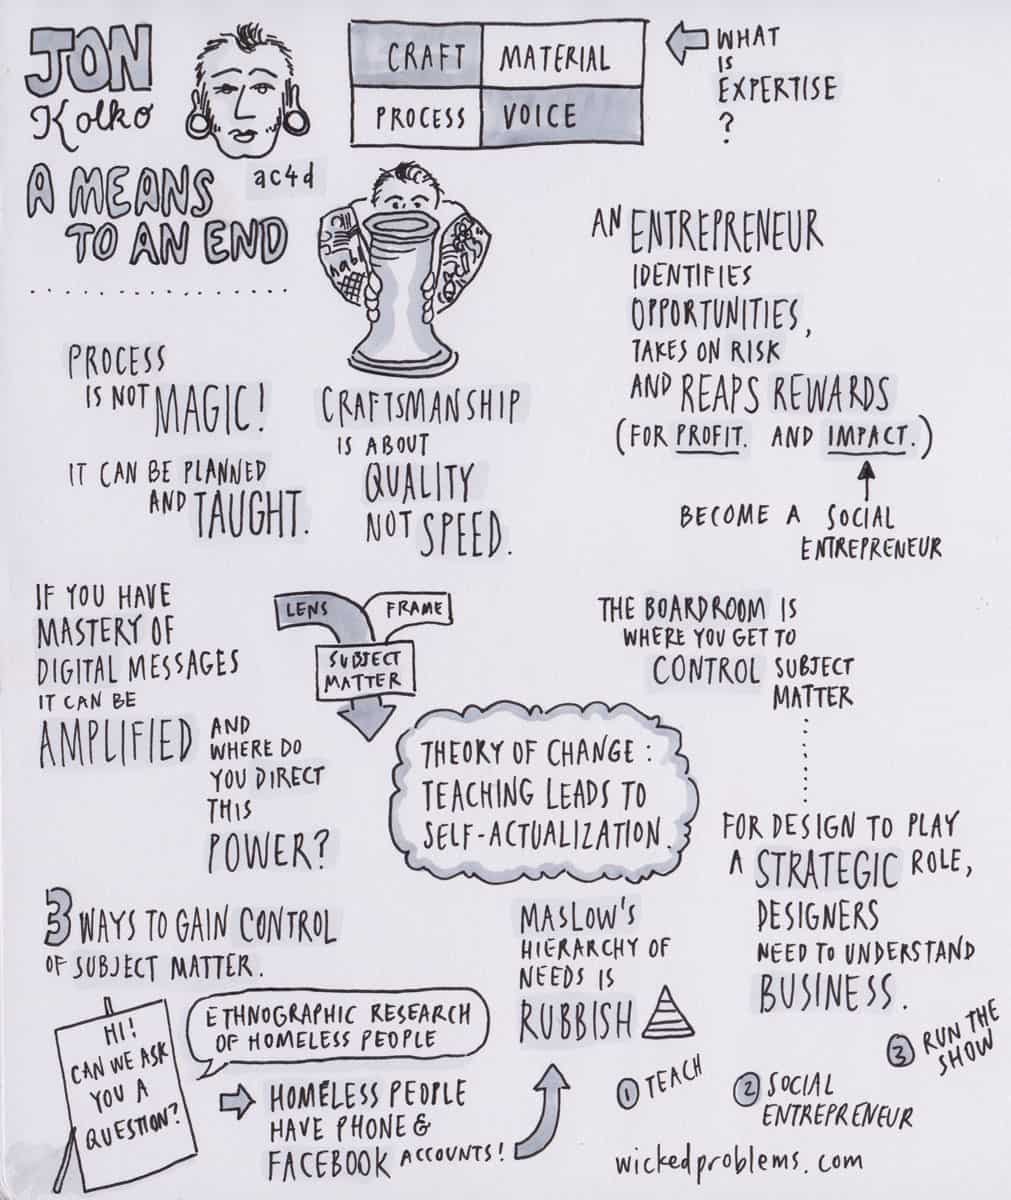 JON
Kolko
CRAFT MATERIAL
PROCESS VOICE
WHAT
IS
EXPERTISE
?
ac4d
A MEANS
TO AN END
PROCESS
IS NOT MAGIC!
IT CAN BE PLANNED
AND TAUGHT.
CRAFTSMANSHIP
IS ABOUT
QUALITY
NOT SPEED.
AN ENTREPRENEUR
IDENTIFIES
OPPORTUNITIES,
TAKES ON RISK
AND REAPS REWARDS
(FOR PROFIT. AND IMPACT.)
BECOME A SOCIAL
ENTREPRENEUR
IF YOU HAVE
MASTERY OF
DIGITAL MESSAGES
IT CAN BE
AMPLIFIED AND
WHERE DO
YOU DIRECT
THIS
POWER?
LENS FRAME
SUBJECT
MATTER
THE BOARDROOM IS
WHERE YOU GET TO
CONTROL SUBJECT
MATTER
THEORY OF CHANGE:
TEACHING LEADS TO
SELF-ACTUALIZATION.
FOR DESIGN TO PLAY
A STRATEGIC ROLE,
DESIGNERS
NEED TO UNDERSTAND
BUSINESS.
3 WAYS TO GAIN CONTROL
OF SUBJECT MATTER.
HI!
CAN WE ASK
YOU A
QUESTION?
ETHNOGRAPHIC RESEARCH
OF HOMELESS PEOPLE
HOMELESS PEOPLE
HAVE PHONE &
FACEBOOK ACCOUNTS!
MASLOW'S
HIERARCHY OF
NEEDS IS
RUBBISH
1 TEACH
2 SOCIAL
ENTREPRENEUR
3 RUN THE
SHOW
wickedproblems.com